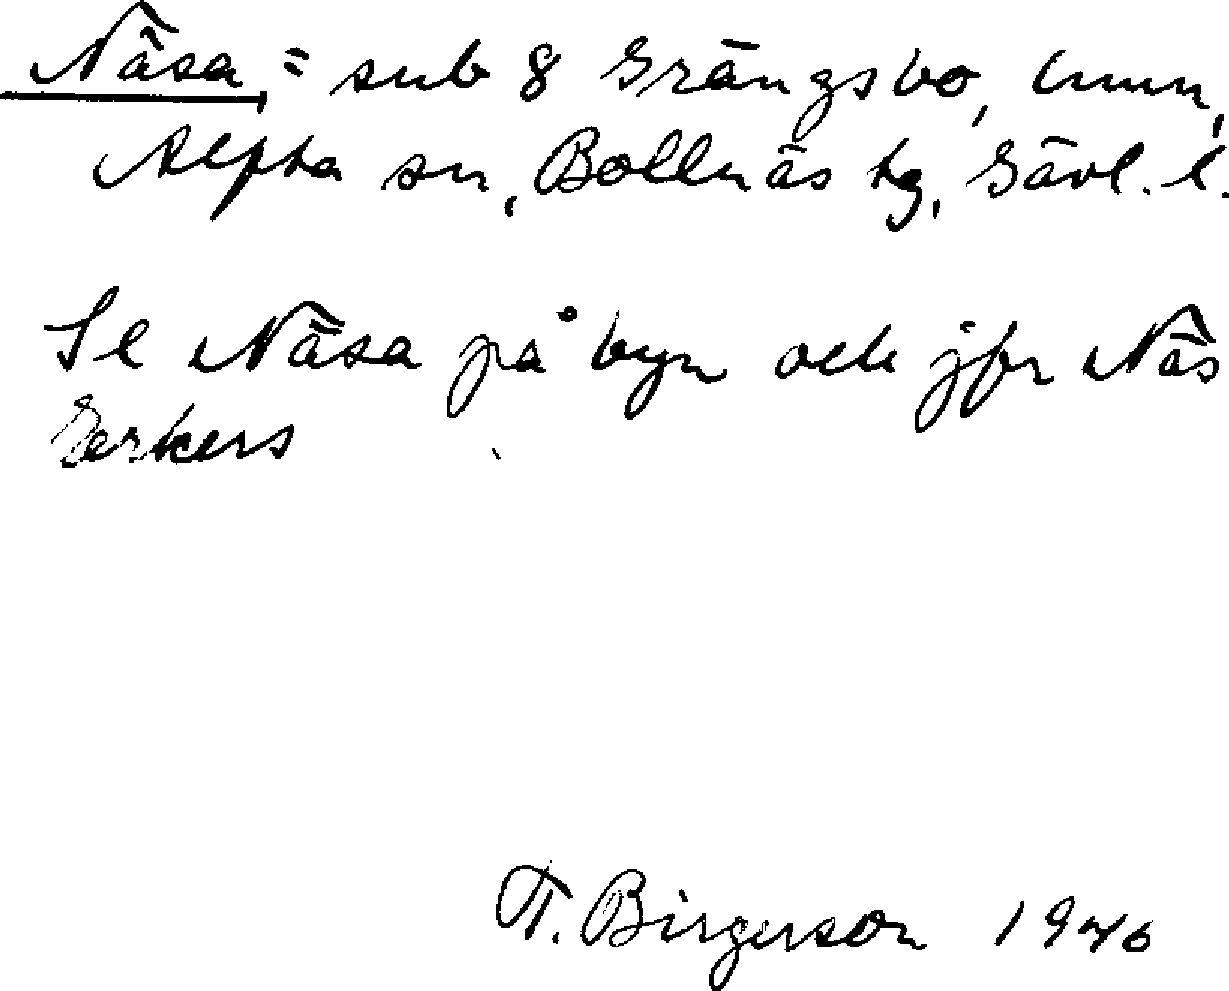 Näsa, = sub 8 Grängsbo, hmn,
Alfta sn, Bollnäs tg, Gävl. l.
Se Näsa på byn och jfr Näs
Gerkers
T. Birgerson 1946